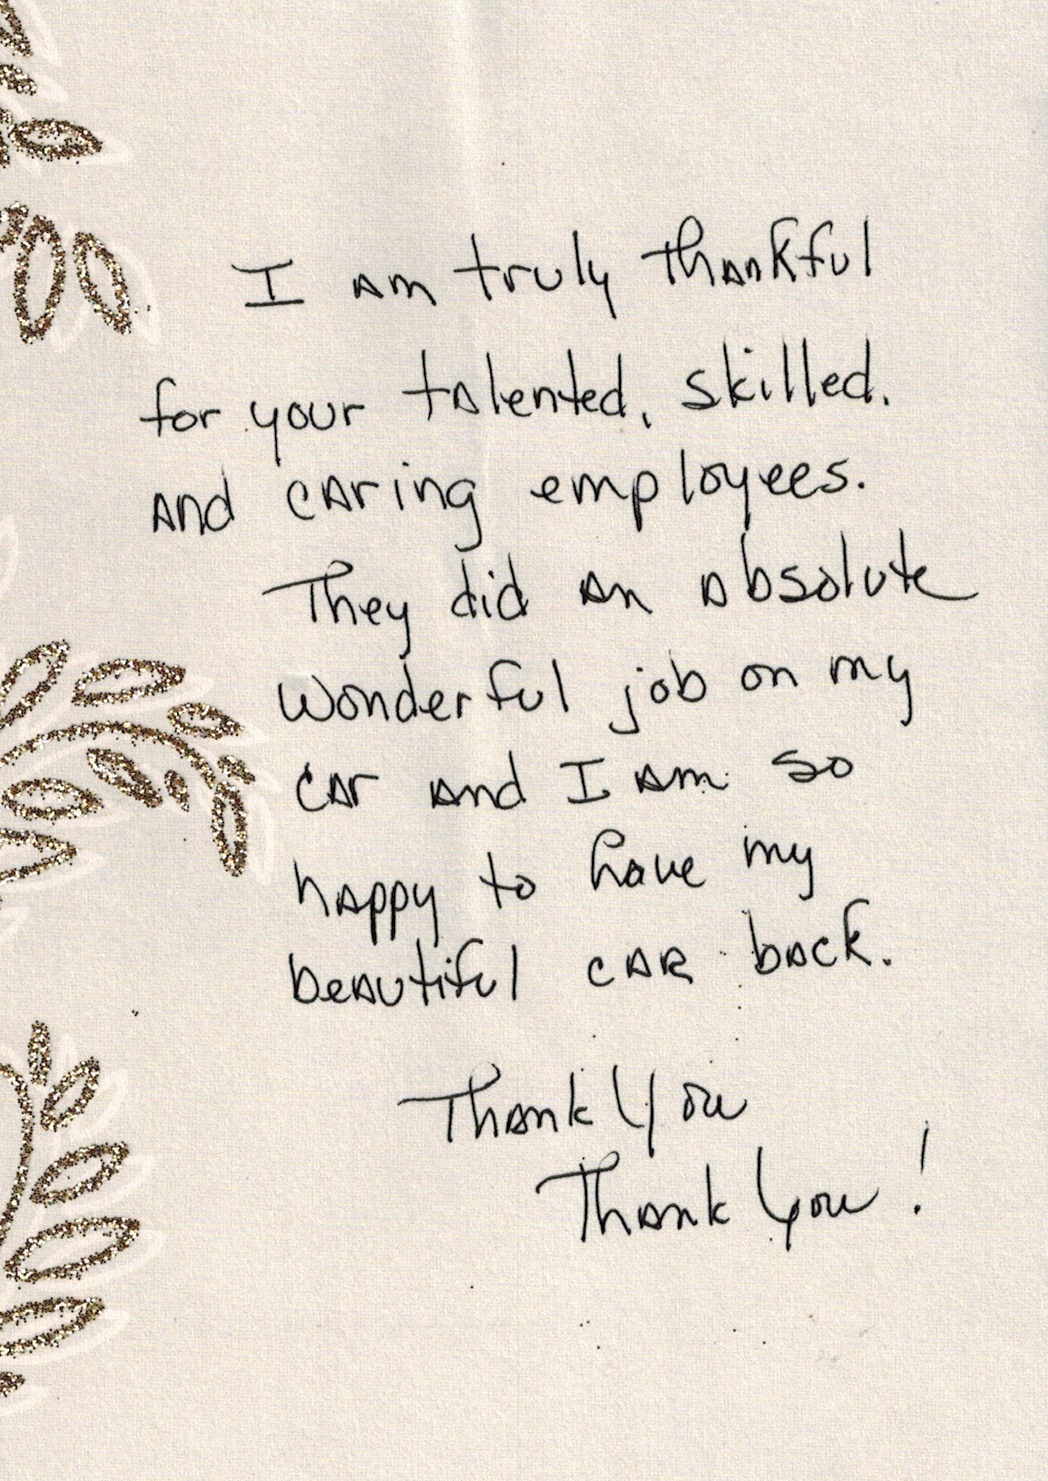 I am truly thankful
for your talented, skilled,
and caring employees.
They did an absolute
wonderful job on my
car and I am so
happy to have my
beautiful car back.
Thank You
Thank You!